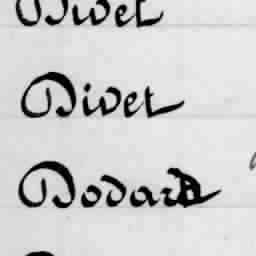 Divet
Divet
Dodard